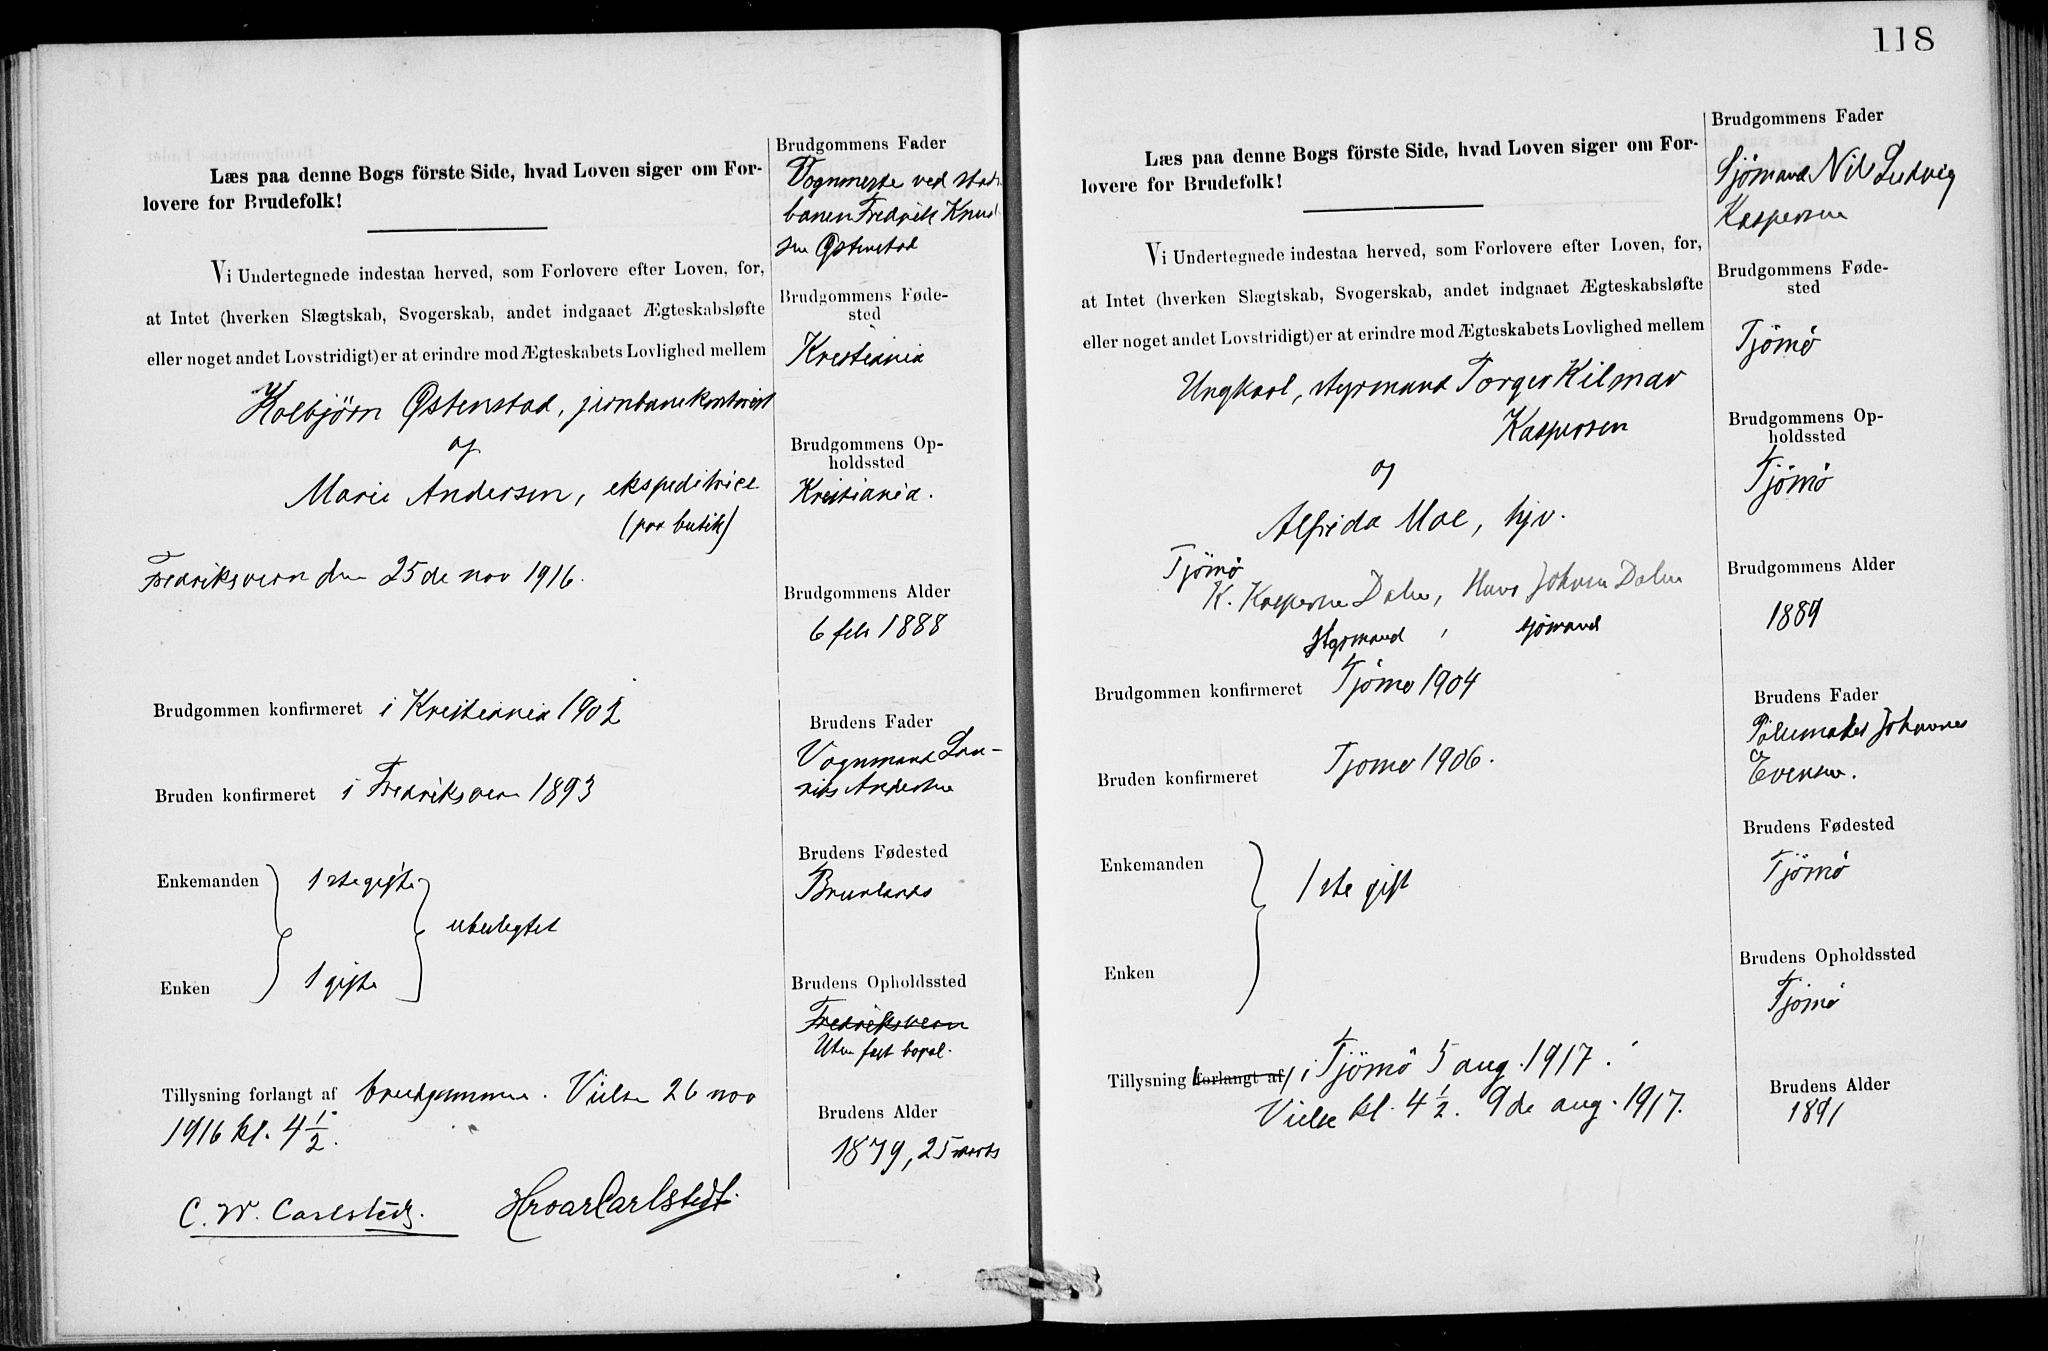 Læs paa denne Bogs förste Side, hvad Loven siger om For-
lovere for Brudefolk!
Vi Undertegnede indestaa herved, som Forlovere efter Loven, for,
at Intet (hverken Slægtskab, Svogerskab, andet indgaaet Ægteskabsløfte
eller noget andet Lovstridigt) er at erindre mod Ægteskabets Lovlighed mellem
Kolbjörn Østenstad, jernbanekontorist
og
Marie Andersen, ekspeditrice
(paa butik)
Fredriksvern den 25de nov 1916.
Brudgommen konfirmeret i Kristiania 1902
Bruden konfirmeret i Fredriksvern 1893
Enkemanden 1ste gifte
uberegtet
Enken 1 gifte
Tillysning forlangt af brudgommen. Vielse 26 nov
1916 kl. 4 1/2.
C. W. Carlstedt. Hroar Carlstedt.
Brudgommens Fader
Vognmester ved stads
banen Fredrik Knud
sen Østenstad
Brudgommens Føde-
sted
Kristiania
Brudgommens Op-
holdssted
Kristiania.
Brudgommens Alder
6 feb 1888
Brudens Fader
Vognmand Lau-
rits Andersen
Brudens Fødested
Brunlanes
Brudens Opholdssted
Fredriksvern
Uten fast bopel.
Brudens Alder
1879, 25 marts
118
Læs paa denne Bogs förste Side, hvad Loven siger om For-
lovere for Brudefolk!
Vi Undertegnede indestaa herved, som Forlovere efter Loven, for,
at Intet (hverken Slægtskab, Svogerskab, andet indgaaet Ægteskabsløfte
eller noget andet Lovstridigt) er at erindre mod Ægteskabets Lovlighed mellem
Ungkarl, styrmand Torger Hilmar
Kaspersen
og
Alfrida Moe, hjv.
Tjömö
K. Kaspersen Dalen, Hans Johan Dalen
styrmand, sjömand
Brudgommen konfirmeret Tjömö 1904
Bruden konfirmeret Tjomo 1906.
Enkemanden
1ste gift
Enken
Tillysning forlangt af i Tjömö 5 aug. 1917.
Vielse kl. 4 1/2. 9de aug. 1917.
Brudgommens Fader
Sjömand Nils Ludvig
Kaspersen
Brudgommens Føde-
sted
Tjömö
Brudgommens Op-
holdssted
Tjömö
Brudgommens Alder
1889
Brudens Fader
Pölsemaker Johannes
Evensen.
Brudens Fødested
Tjömö
Brudens Opholdssted
Tjömö
Brudens Alder
1891